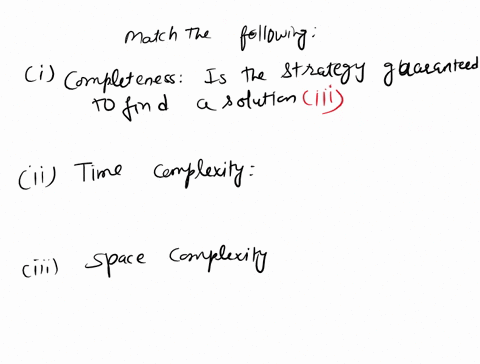 Match the following:
(i) Completeness: Is the strategy guaranteed
to find a solution (iii)
(ii) Time complexity:
(iii) Space complexity